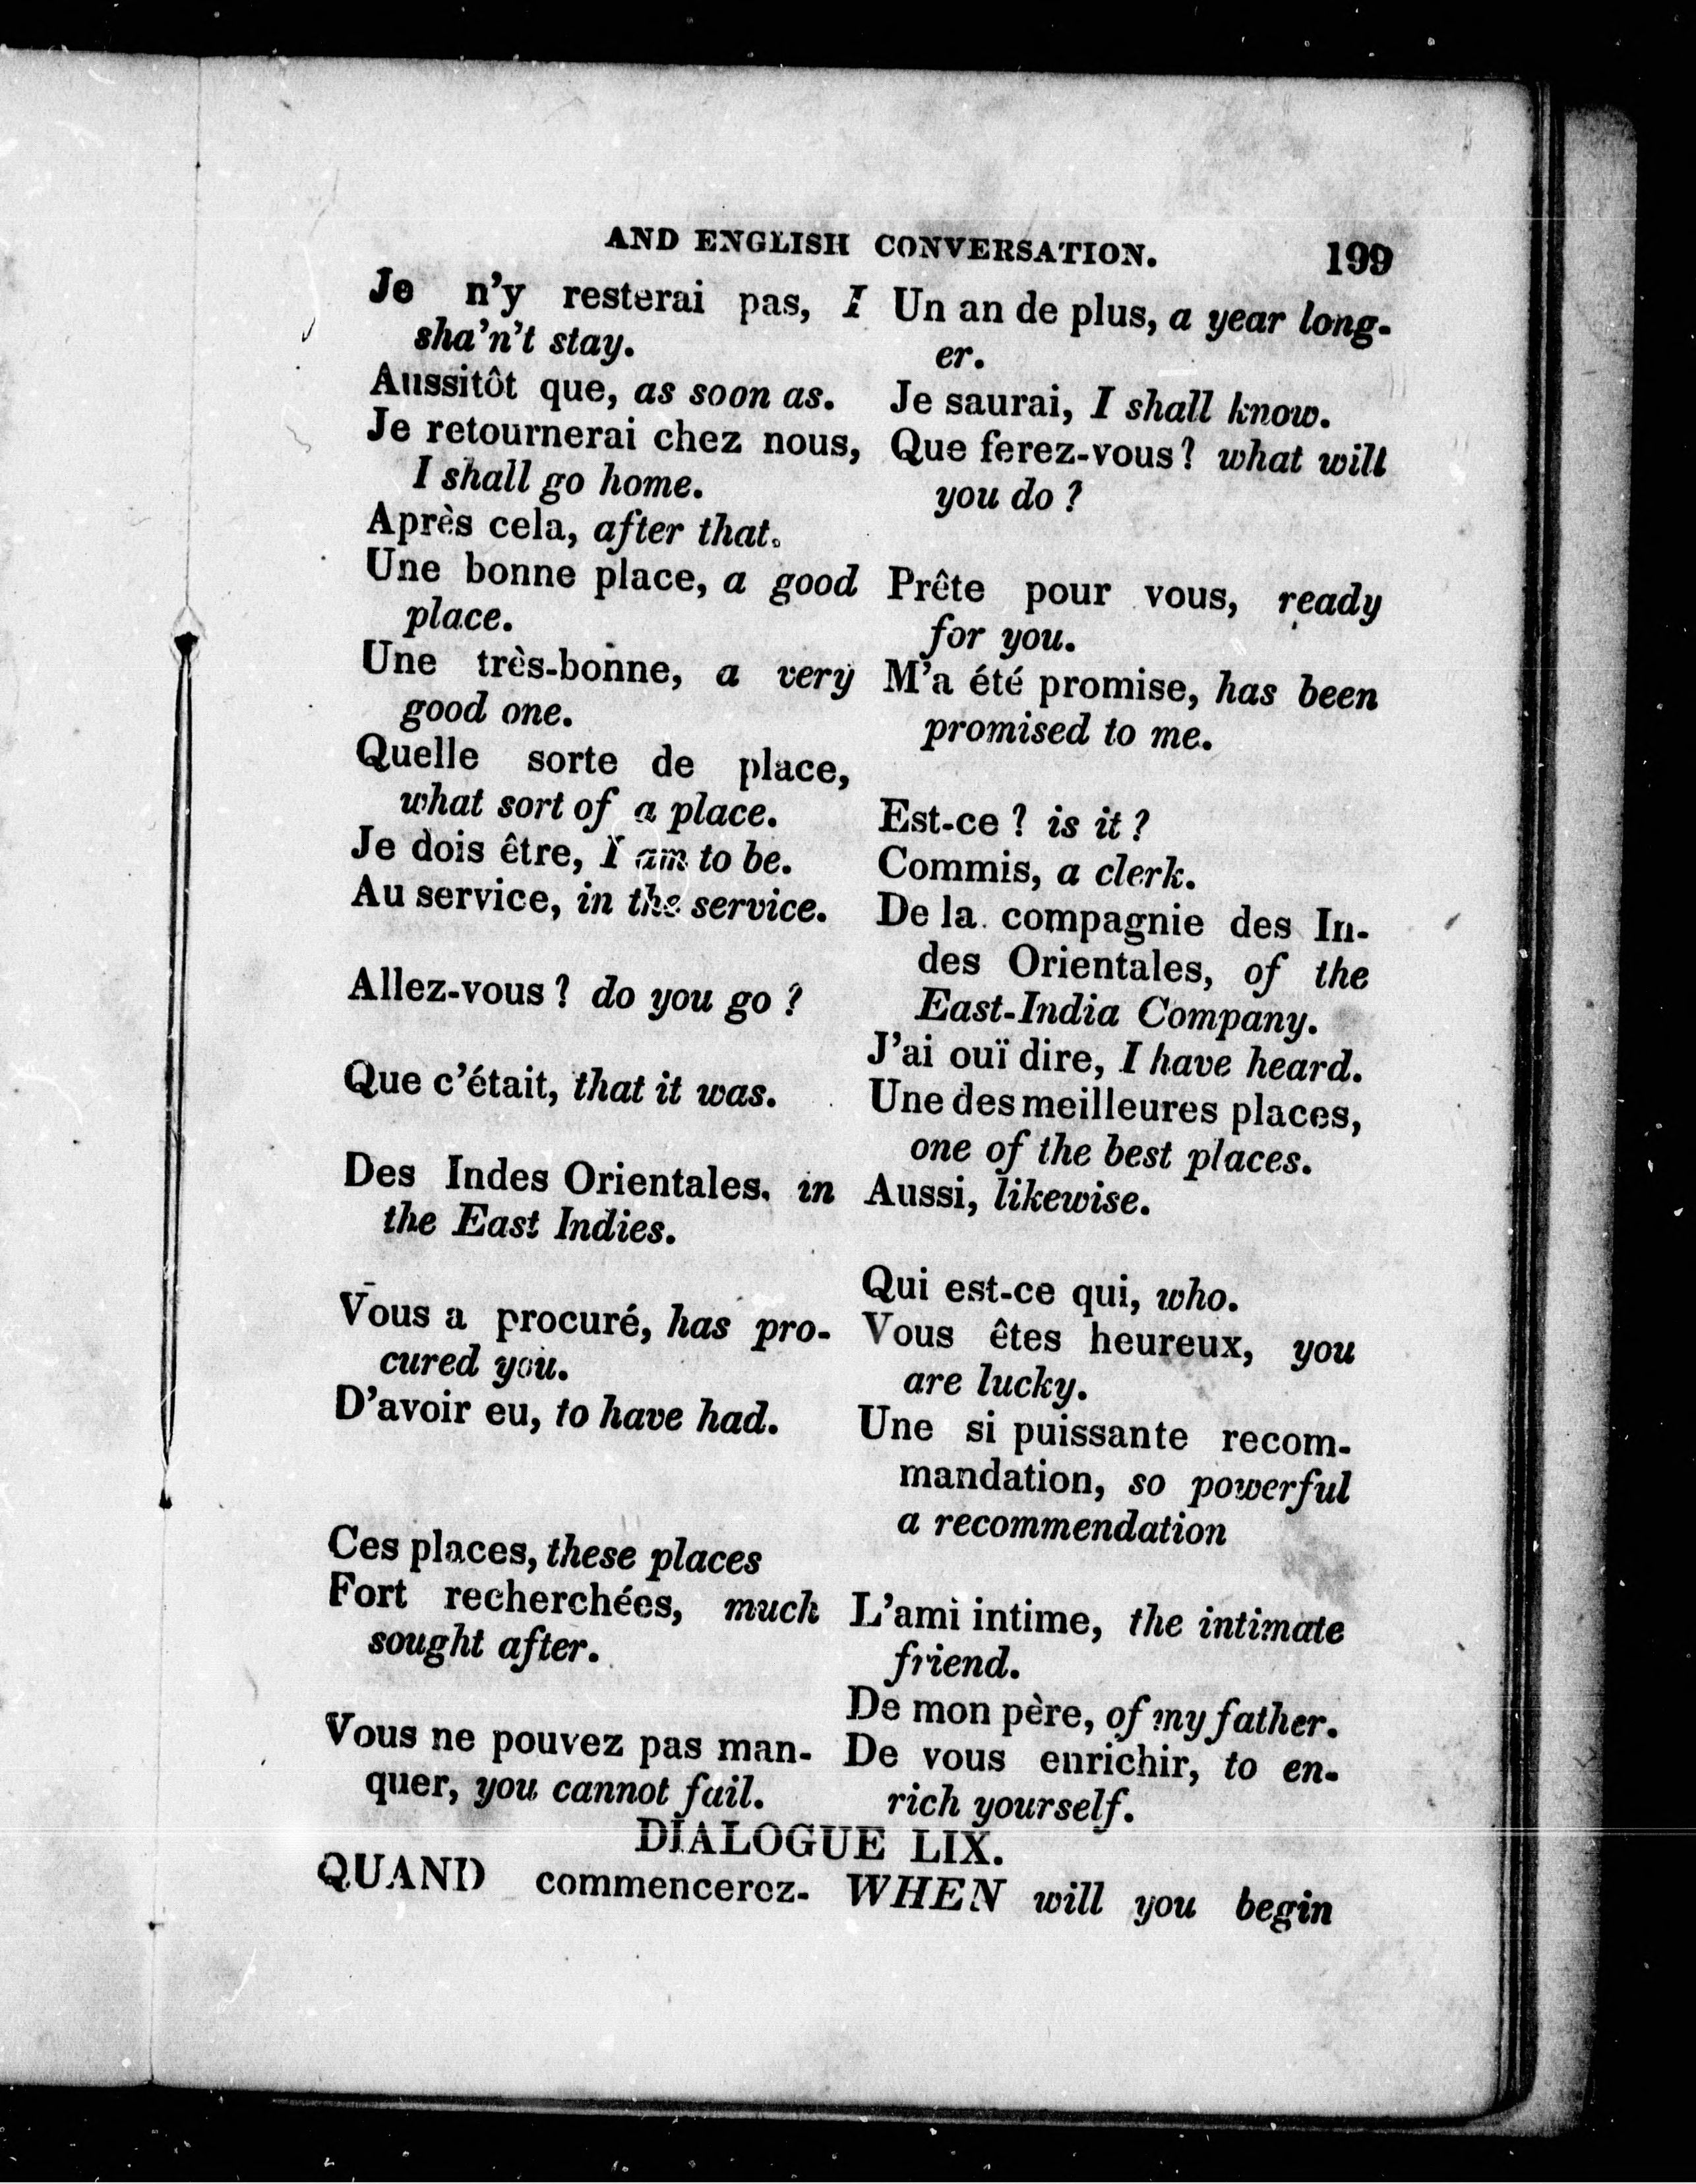 AND ENGLISH CONVERSATION. 199
Je n'y resterai pas, I
sha'n't stay.
Aussitôt que, as soon as.
Je retournerai chez nous,
I shall go home.
Après cela, after that.
Une bonne place, a good
place.
Une très-bonne, a very
good one.
Quelle sorte de place,
what sort of a place.
Je dois être, I am to be.
Au service, in the service.
Allez-vous? do you go?
Que c'était, that it was.
Des Indes Orientales, in
the East Indies.
Vous a procuré, has pro-
cured you.
D'avoir eu, to have had.
Ces places, these places
Fort recherchées, much
sought after.
Vous ne pouvez pas man-
quer, you cannot fail.
Un an de plus, a year long-
er.
Je saurai, I shall know.
Que ferez-vous? what will
you do?
Prête pour vous, ready
for you.
M'a été promise, has been
promised to me.
Est-ce? is it?
Commis, a clerk.
De la compagnie des In-
des Orientales, of the
East-India Company.
J'ai ouï dire, I have heard.
Une des meilleures places,
one of the best places.
Aussi, likewise.
Qui est-ce qui, who.
Vous êtes heureux, you
are lucky.
Une si puissante recom-
mandation, so powerful
a recommendation
L'ami intime, the intimate
friend.
De mon père, of my father.
De vous enrichir, to en-
rich yourself.
DIALOGUE LIX.
QUAND commencerez-
WHEN will you begin